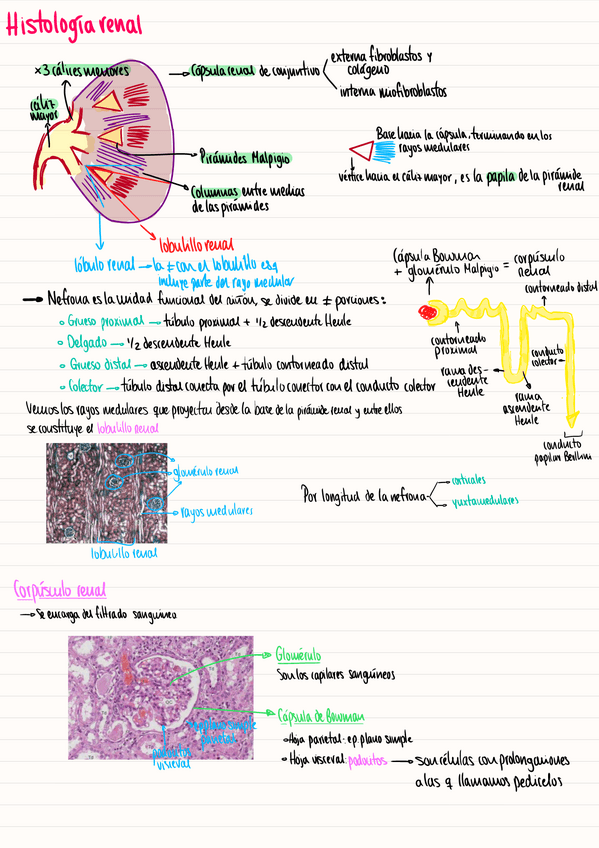 Histología renal
x3 cálices menores
cáliz mayor
→ Cápsula renal de conjuntivo
externa fibroblastos y colágeno
interna miofibroblastos
Pirámides Malpigio
Columnas entre medias de las pirámides
Base hacia la cápsula, terminando en los rayos medulares
vértice hacia el cáliz mayor, es la papila de la pirámide renal
lobulillo renal
lóbulo renal → la ≠ con el lobulillo es q incluye parte del rayo medular
→ Nefrona es la unidad funcional del riñón, se divide en ≠ porciones:
◦ Grueso proximal → túbulo proximal + 1/2 descendente Henle
◦ Delgado → 1/2 descendente Henle
◦ Grueso distal → ascendente Henle + túbulo contorneado distal
◦ Colector → túbulo distal conecta por el túbulo conector con el conducto colector
Cápsula Bowman
+ glomérulo Malpigio = corpúsculo renal
contorneado distal
contorneado proximal
rama descendente Henle
conducto colector
rama ascendente Henle
conducto papilar Bellini
Vemos los rayos medulares que proyectan desde la base de la pirámide renal y entre ellos
se constituye el lobulillo renal
glomérulo renal
rayos medulares
lobulillo renal
Por longitud de la nefrona
corticales
yuxtamedulares
Corpúsculo renal
→ Se encarga del filtrado sanguíneo
Glomérulo
Son los capilares sanguíneos
Cápsula de Bowman
• Hoja parietal: ep. plano simple
• Hoja visceral: podocitos → son células con prolongaciones
a las q llamamos pedicelos
epitelio simple
podocitos visceral